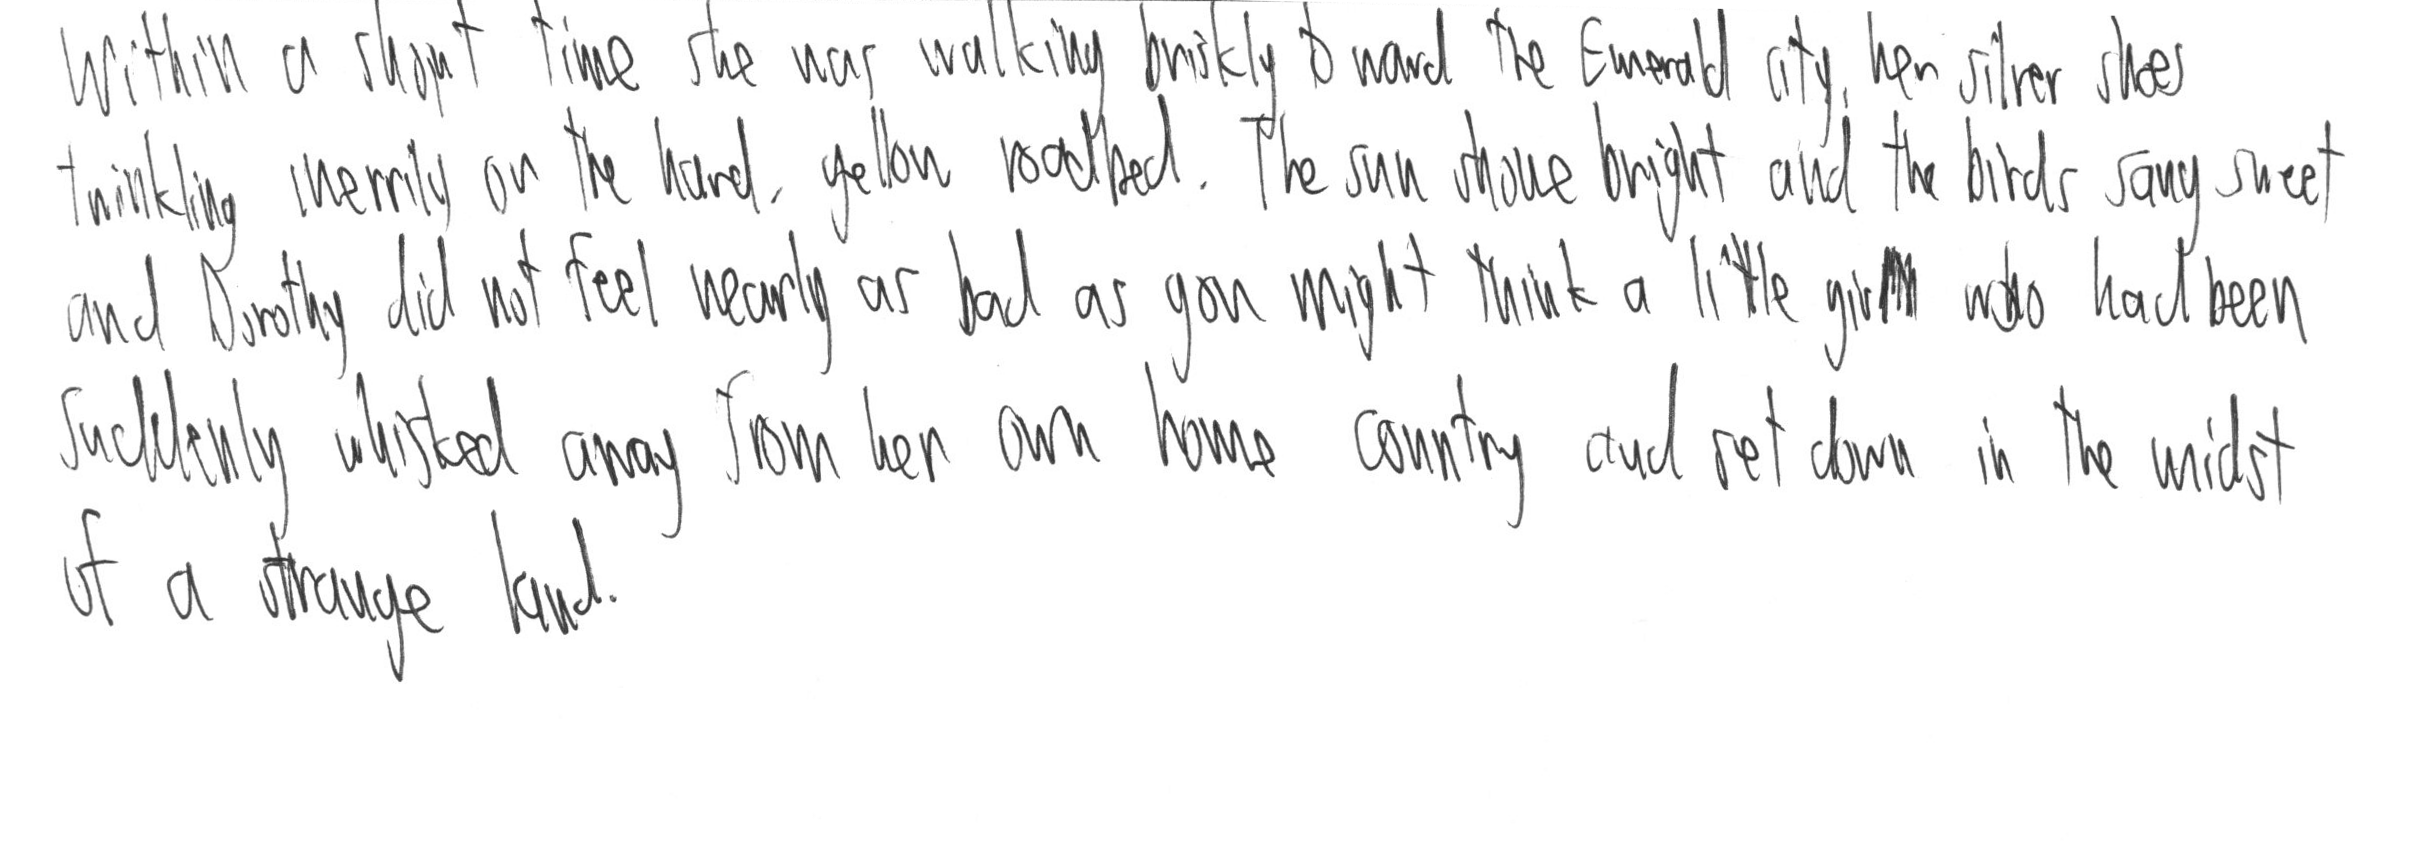 Within a short time she was walking briskly toward the Emerald city, her silver shoes
twinkling merrily on the hard, yellow roadbed. The sun shone bright and the birds sang sweet
and Dorothy did not feel nearly as bad as you might think a little girl who had been
suddenly whisked away from her own home country and set down in the midst
of a strange land.